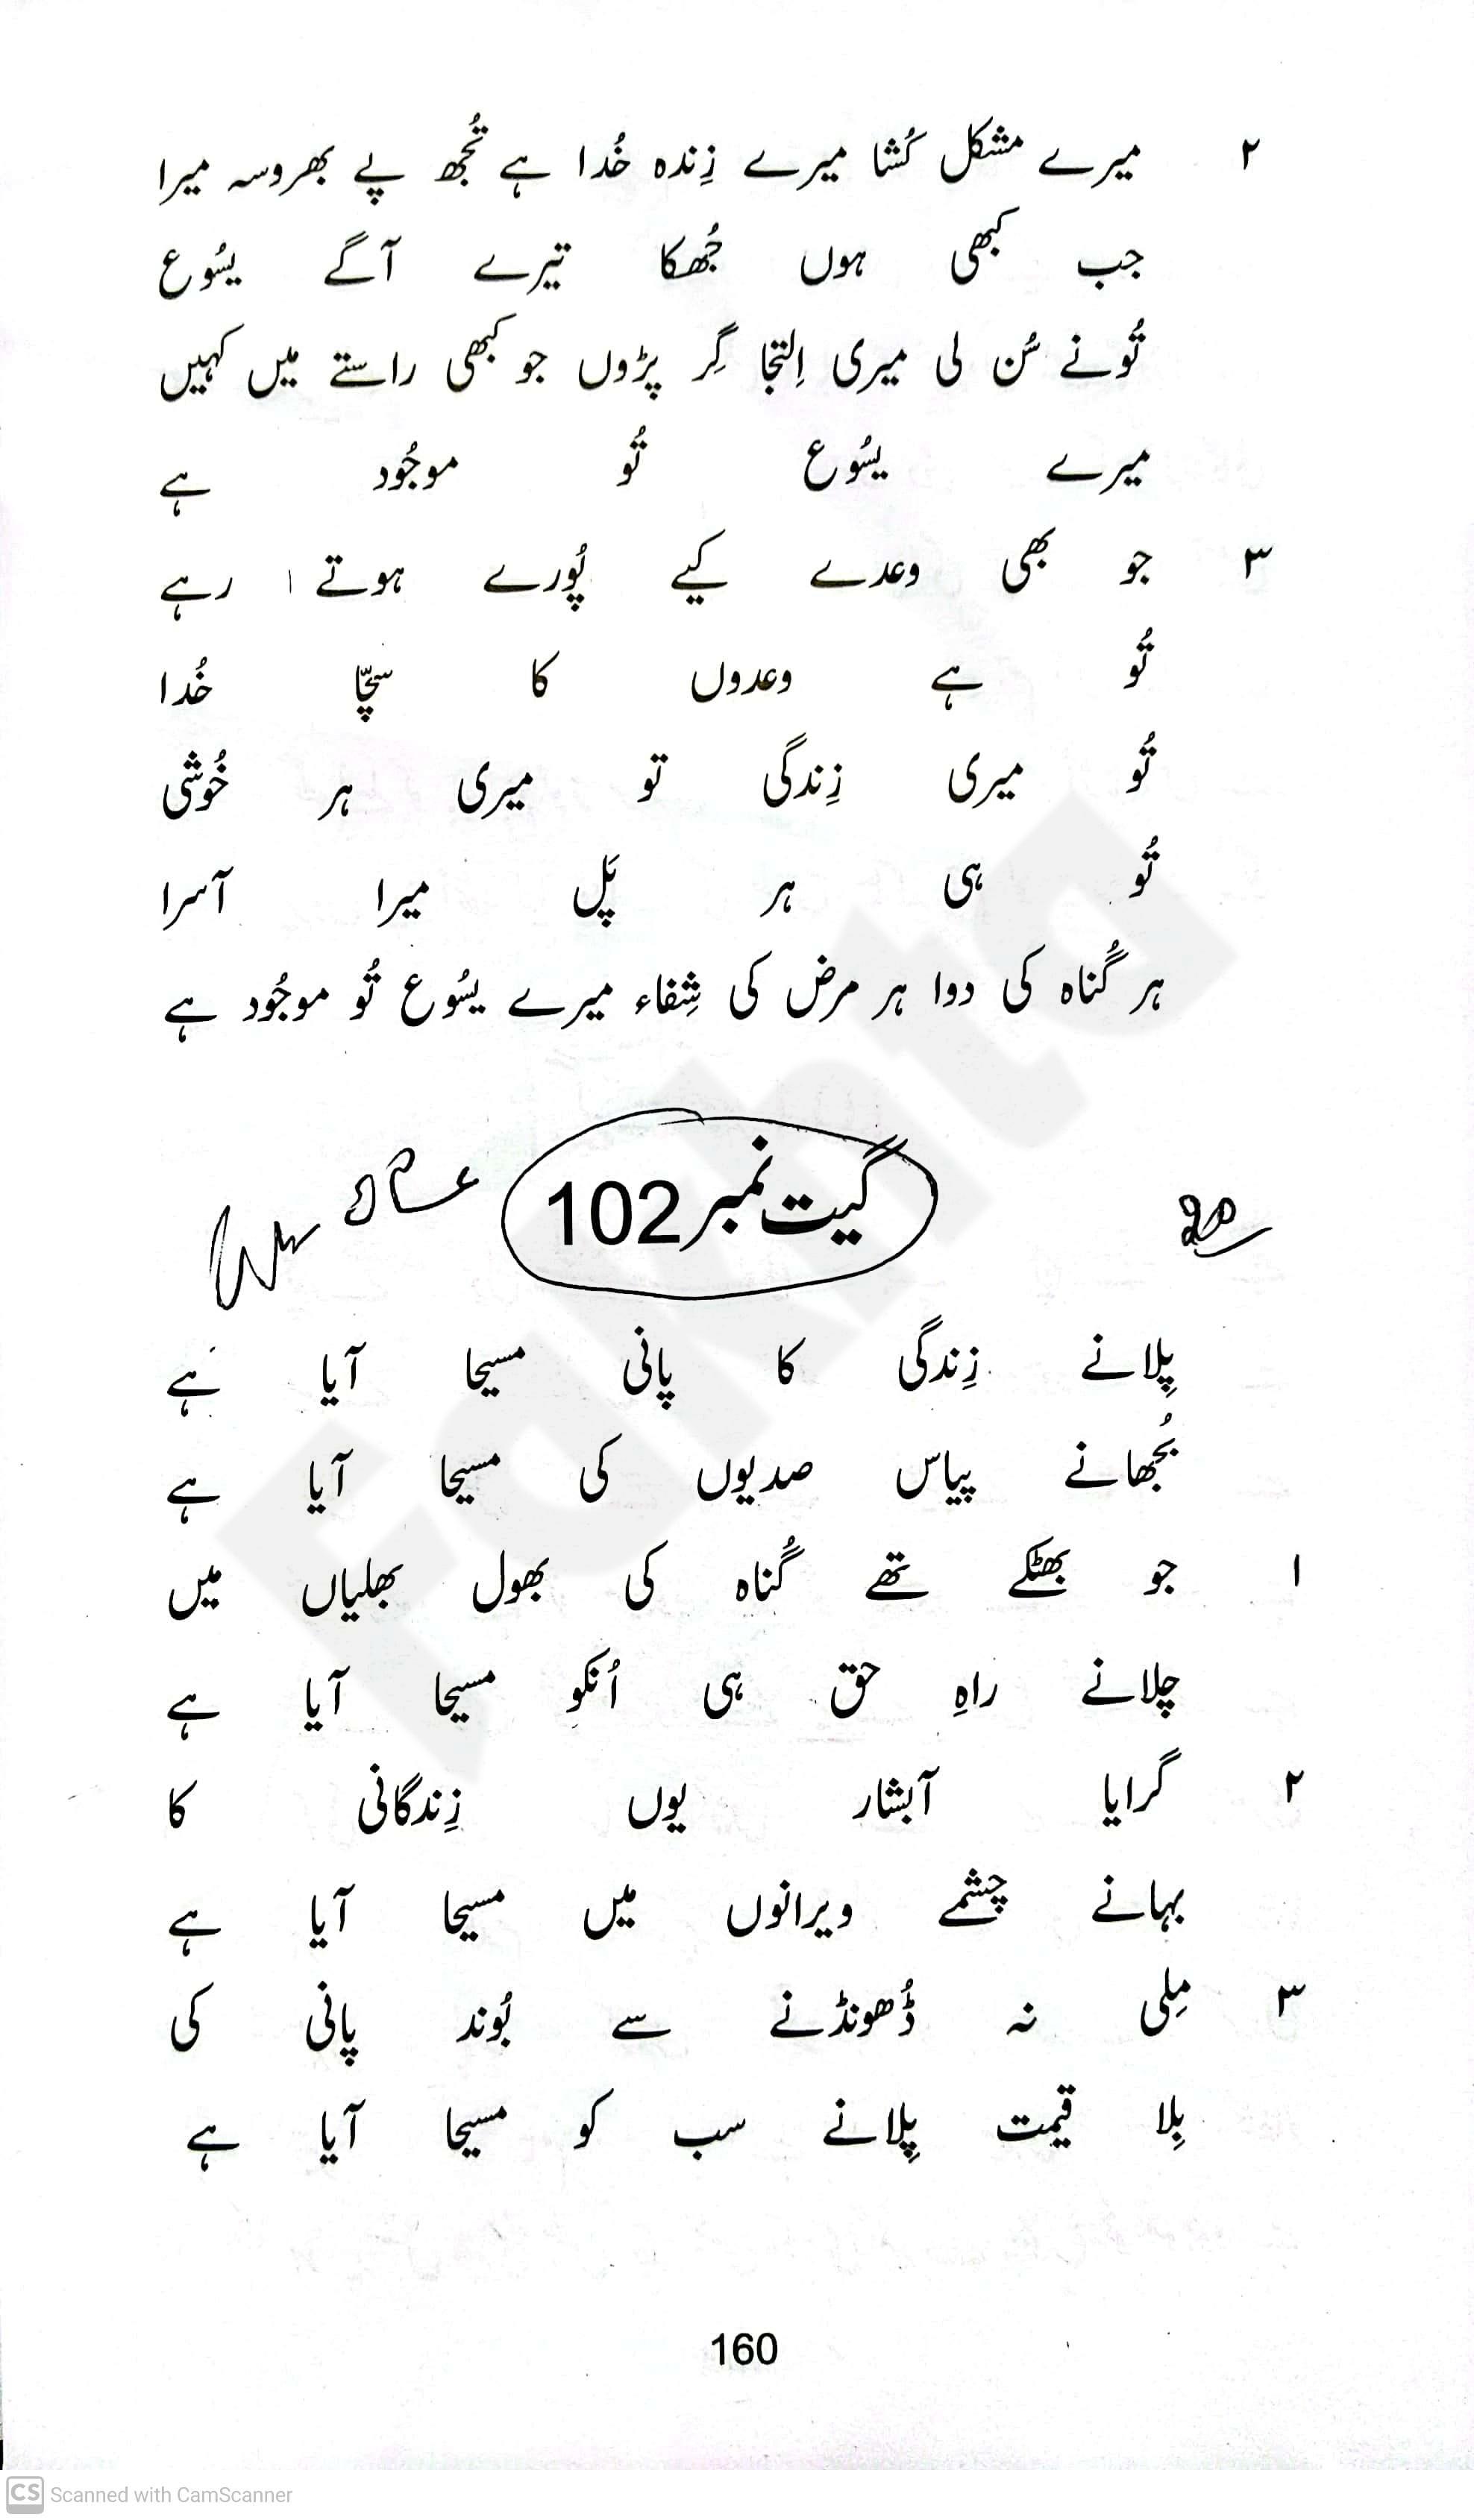 ۲ میرے مشکل کُشا میرے زِندہ خُدا ہے تُجھ پے بھروسہ میرا
جب کبھی ہوں جُھکا تیرے آگے یسُوع
تُونے سُن لی میری اِلتجا گِر پڑوں جو کبھی راستے میں کہیں
میرے یسُوع تُو موجُود ہے
۳ جو بھی وعدے کیے پُورے ہوتے رہے
تُو ہے وعدوں کا سچّا خُدا
تُو میری زِندگی تو میری ہر خُوشی
تُو ہی ہر پَل میرا آسرا
ہر گُناہ کی دوا ہر مرض کی شِفاء میرے یسُوع تُو موجُود ہے
گیت نمبر 102
پِلانے زِندگی کا پانی مسیحا آیا ہے
بُجھانے پیاس صدیوں کی مسیحا آیا ہے
۱ جو بھٹکے تھے گُناہ کی بھول بھلیاں میں
چلانے راہِ حق ہی اُنکو مسیحا آیا ہے
۲ گرایا آبشار یوں زِندگانی کا
بہانے چشمے ویرانوں میں مسیحا آیا ہے
۳ مِلی نہ ڈُھونڈنے سے بُوند پانی کی
بِلا قیمت پِلانے سب کو مسیحا آیا ہے
160
CS Scanned with CamScanner
Fakhta